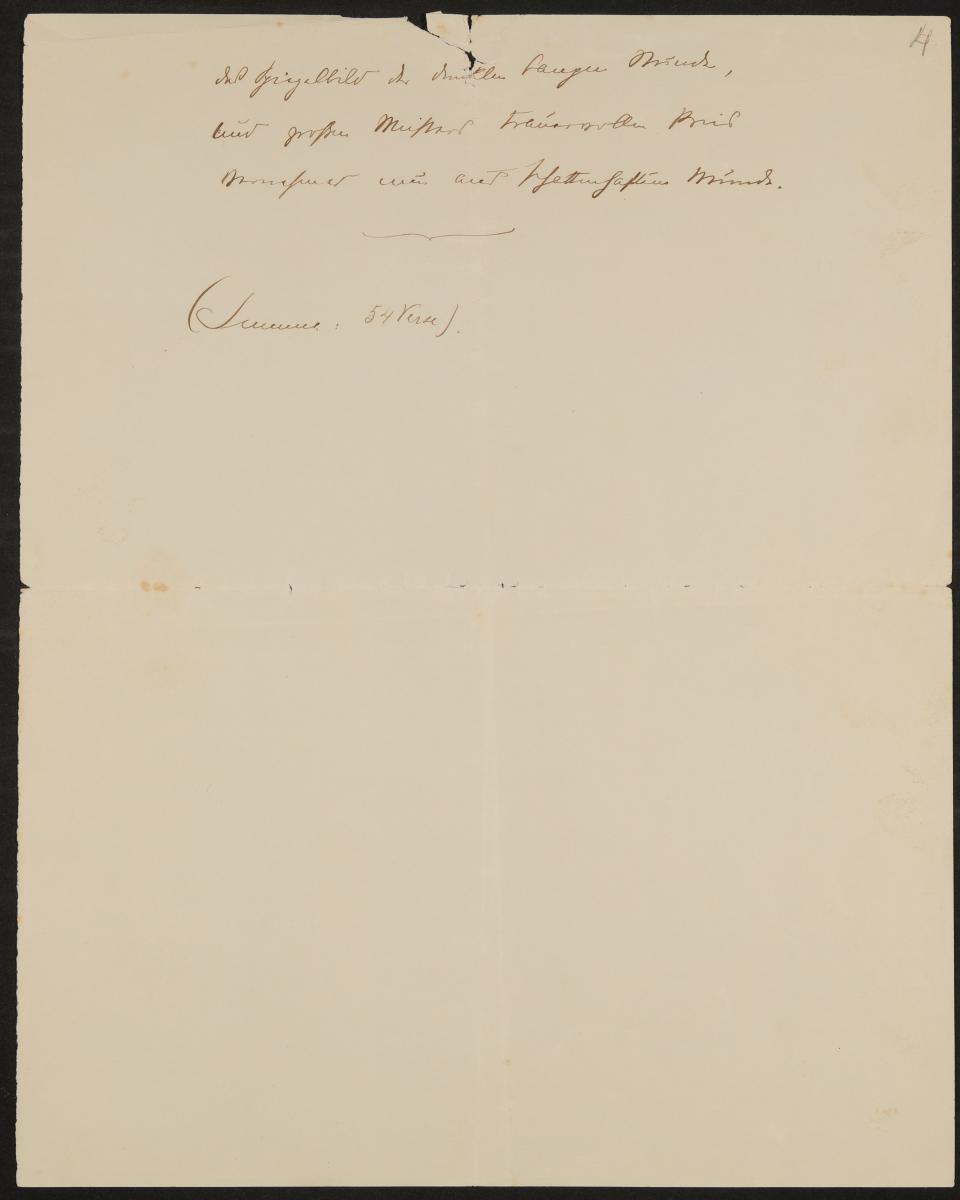 4
das Spiegelbild der dunklen bangen Stunde,
und großen Meisters trauervollen Preis
vernehmet nun aus schattenhaftem Munde.
(Summe: 54 Verse).